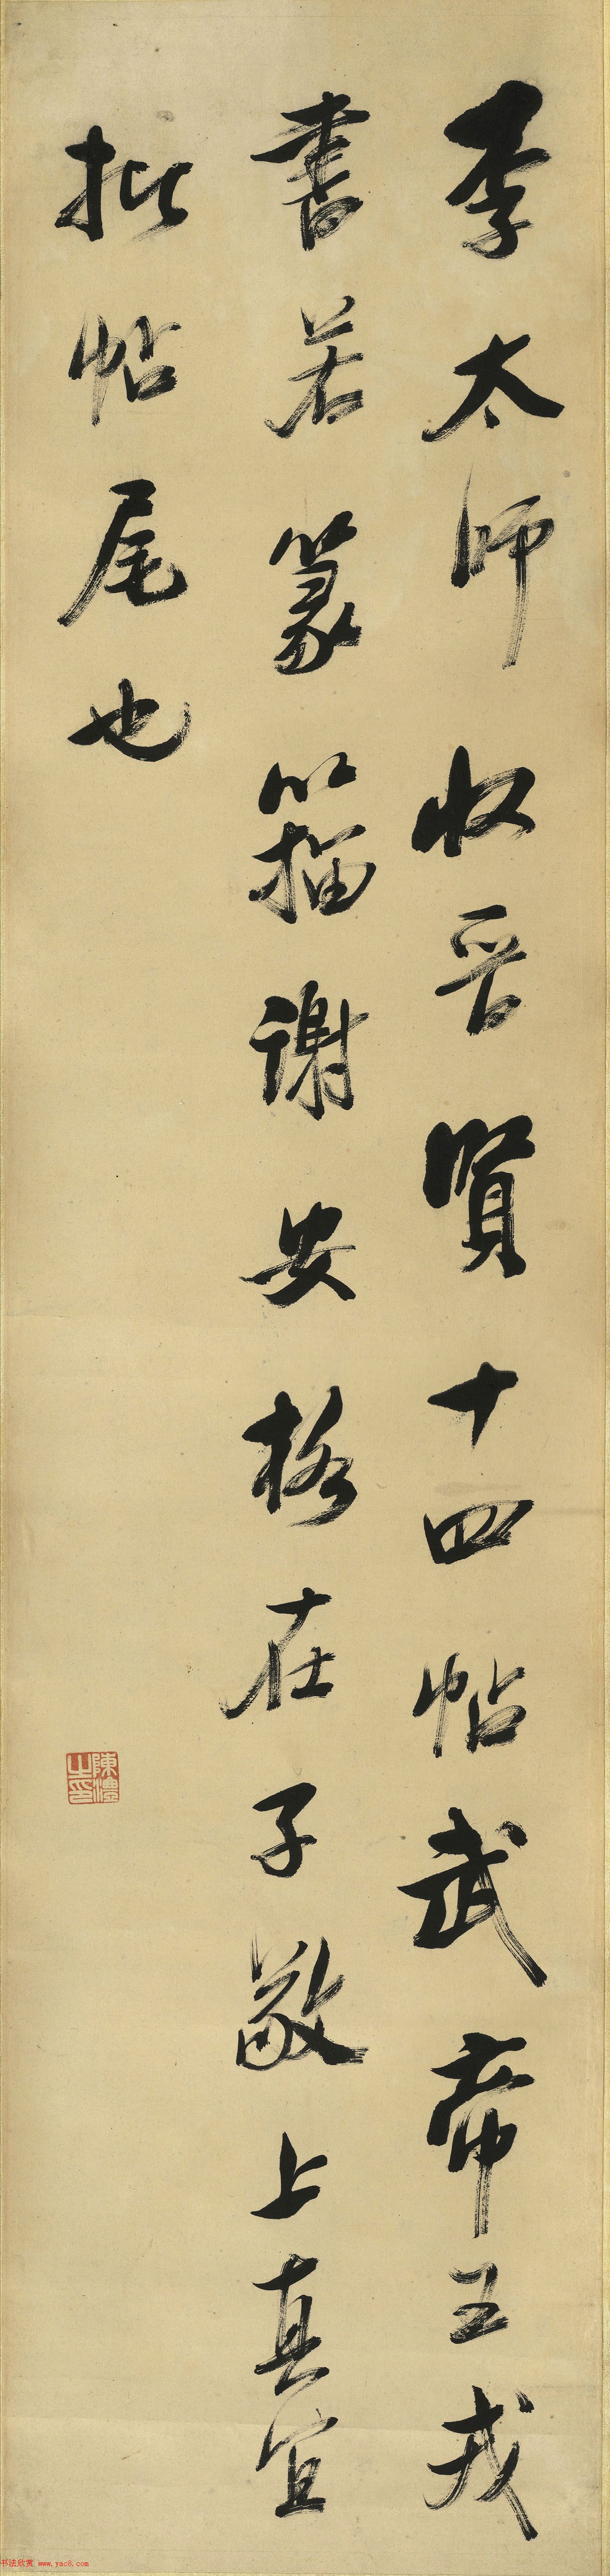 李太師收晉賢十四帖武帝王戎
書若篆籀謝安格在子敬上真宜
批帖尾也
陳澧之印
书法欣赏 www.yac8.com